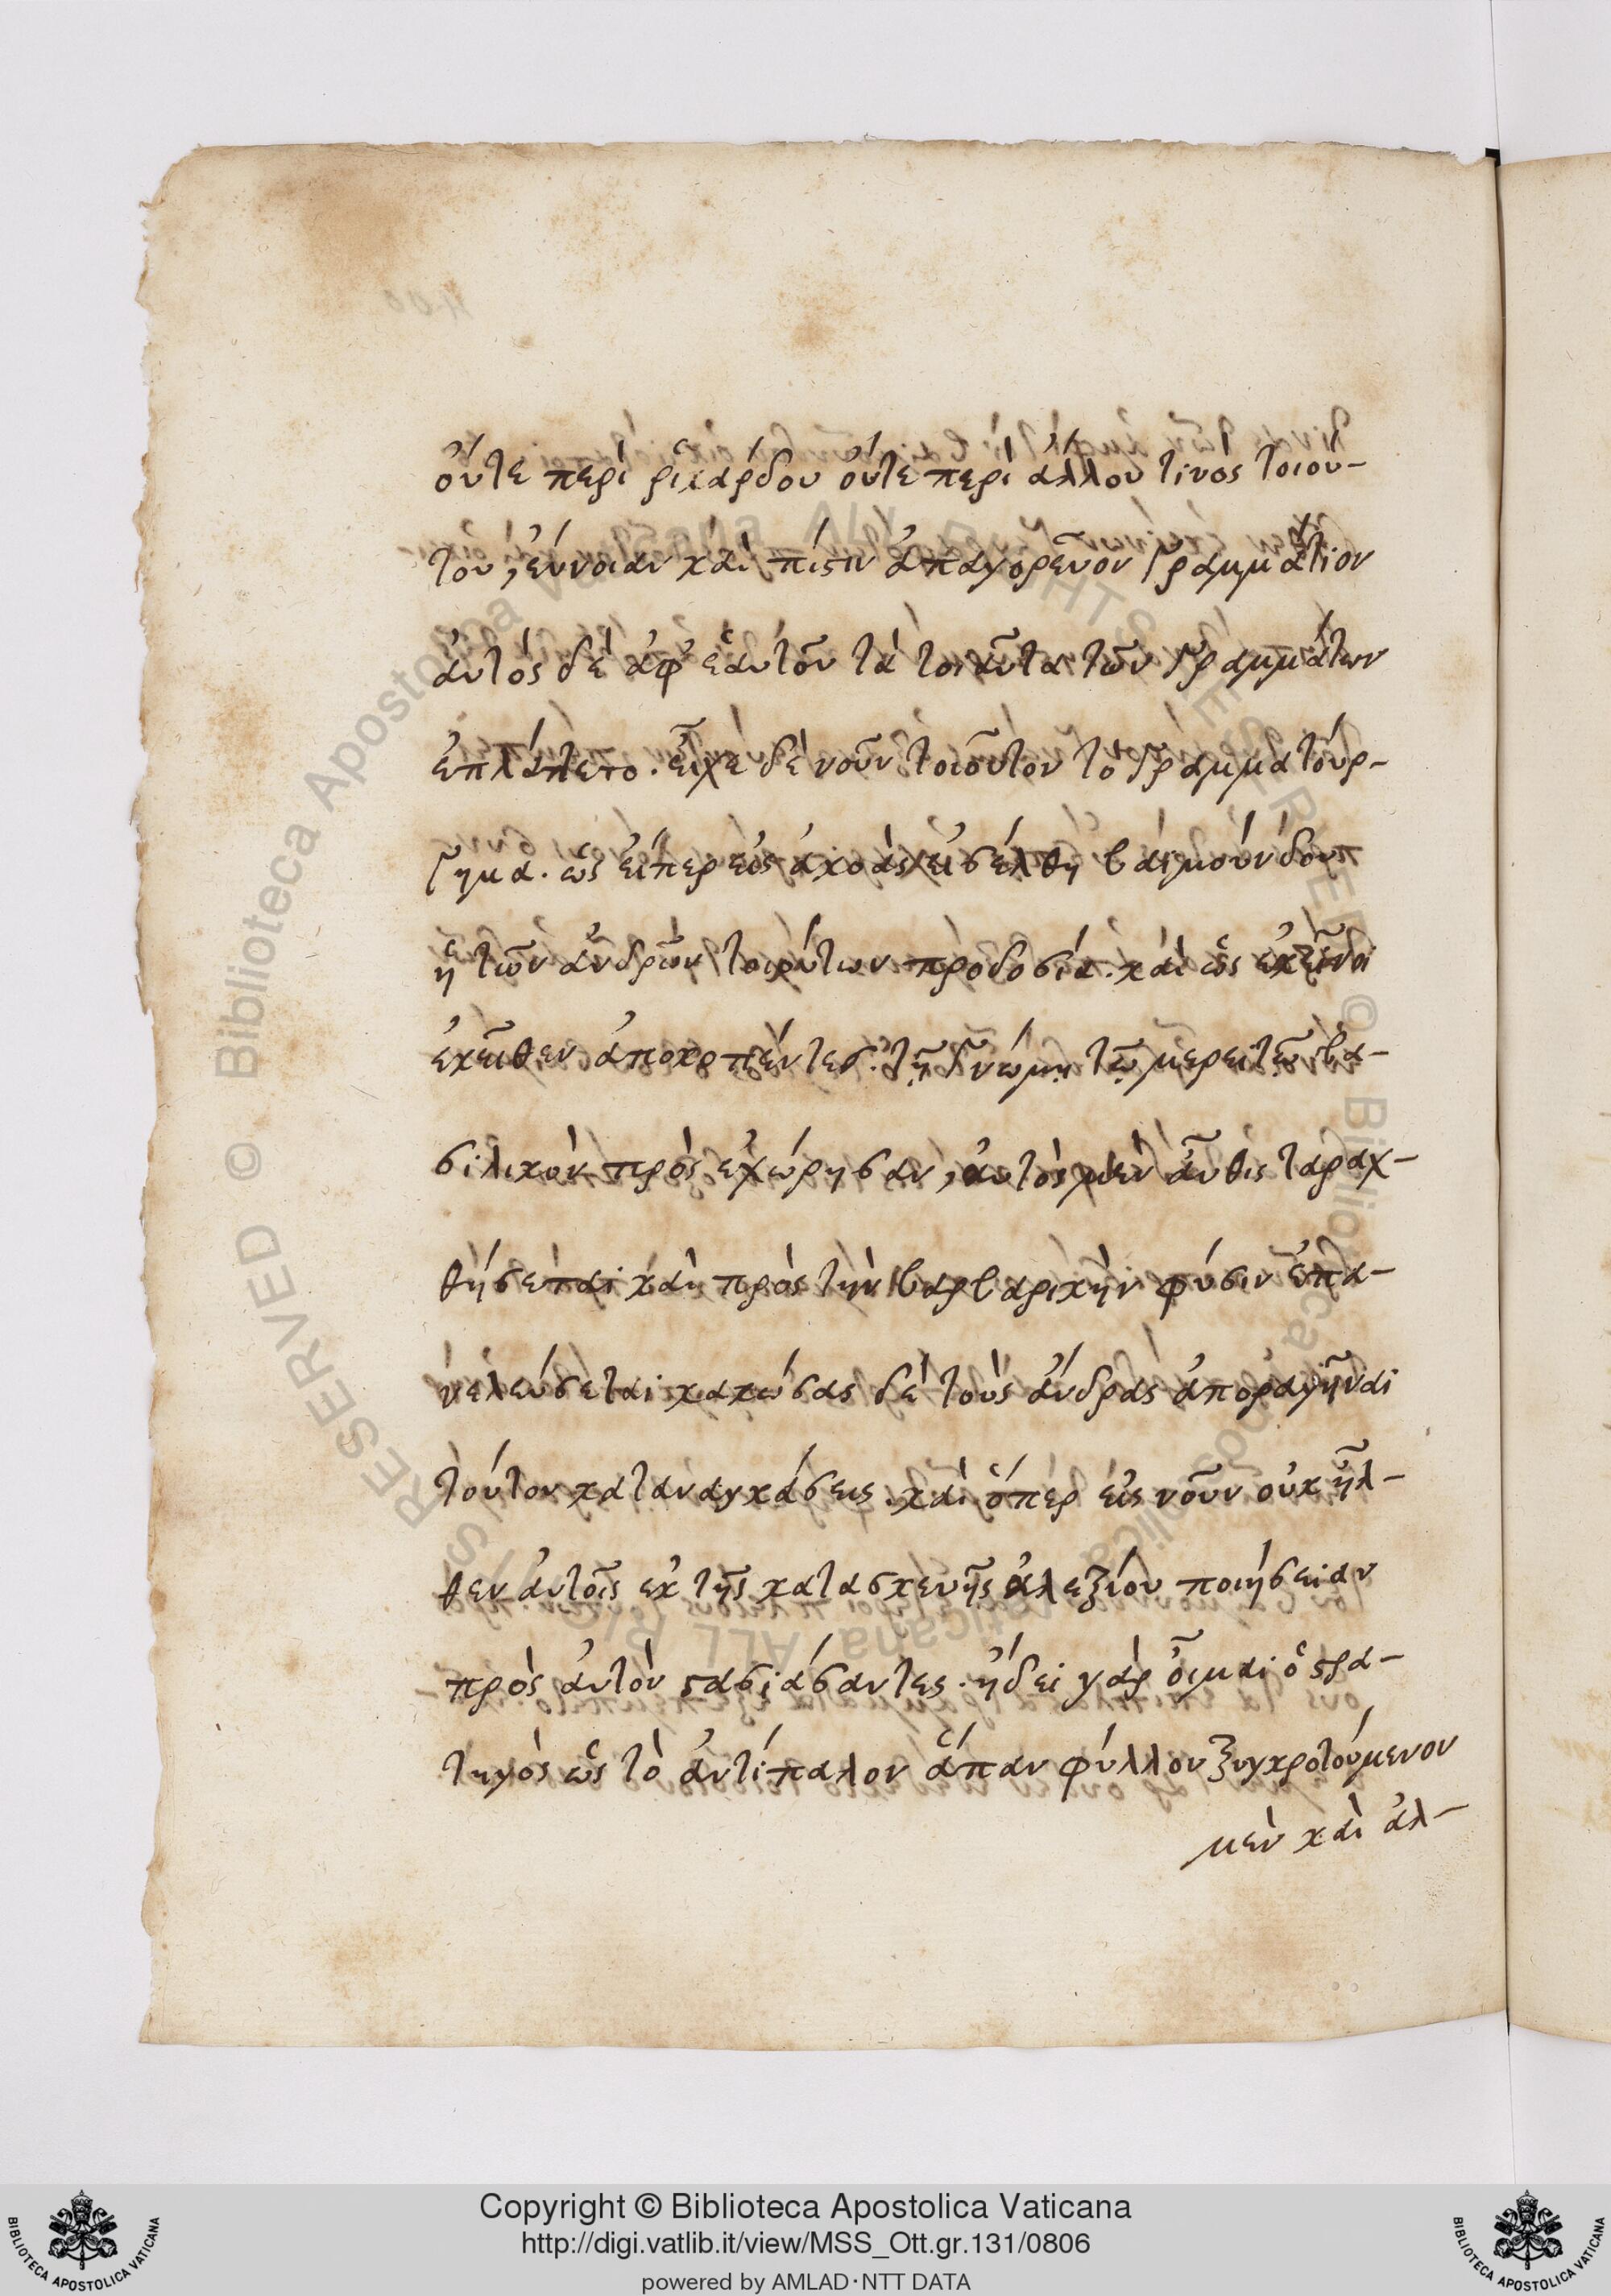 οὔτε περὶ ῥικάρδου οὔτε περὶ ἄλλου τινὸς τοιού-
του, εὔνοιαν καὶ πίστιν ἀπαγορεῦον γραμμάτιον
αὐτὸς δὲ ἀφ' ἑαυτοῦ τὰ τοιαῦτα τῶν γραμμάτων
ἐπλάττετο. εἶχε δὲ νοῦν τοιοῦτον τὸ γραμματούρ-
γημα. ὡς εἴπερ εἰς ἀκοὰς εἰσέλθῃ βαϊμούνδου
ἡ τῶν ἀνδρῶν τοιούτων προδοσία. καὶ ὡς ἐκεῖνοι
ἐκεῖθεν ἀποκοπέντες. τῇ γνώμῃ τῷ μέρει τῷ βα-
σιλικὸν προσεχώρησαν, αὐτὸς μὲν αὖθις ταραχ-
θήσεται καὶ πρὸς τὴν βαρβαρικὴν φύσιν ἐπα-
νελεύσεται κακώσας δὲ τοὺς ἄνδρας ἀποραγῆναι
τούτου καταναγκάσεις. καὶ ὅπερ εἰς νοῦν οὐκ ἦλ-
θεν αὐτοῖς ἐκ τῆς κατασκευῆς ἀλεξίου ποιήσειαν
πρὸς αὐτὸν στασιάσαντες. ᾔδει γὰρ οἶμαι ὁ στρα-
τηγὸς ὡς τὸ ἀντίπαλον ἅπαν φύλλου ξυγκροτούμενον
μὲν καὶ ἀλ-
Copyright © Biblioteca Apostolica Vaticana
http://digi.vatlib.it/view/MSS_Ott.gr.131/0806
powered by AMLAD·NTT DATA
BIBLIOTECA APOSTOLICA VATICANA
BIBLIOTECA APOSTOLICA VATICANA